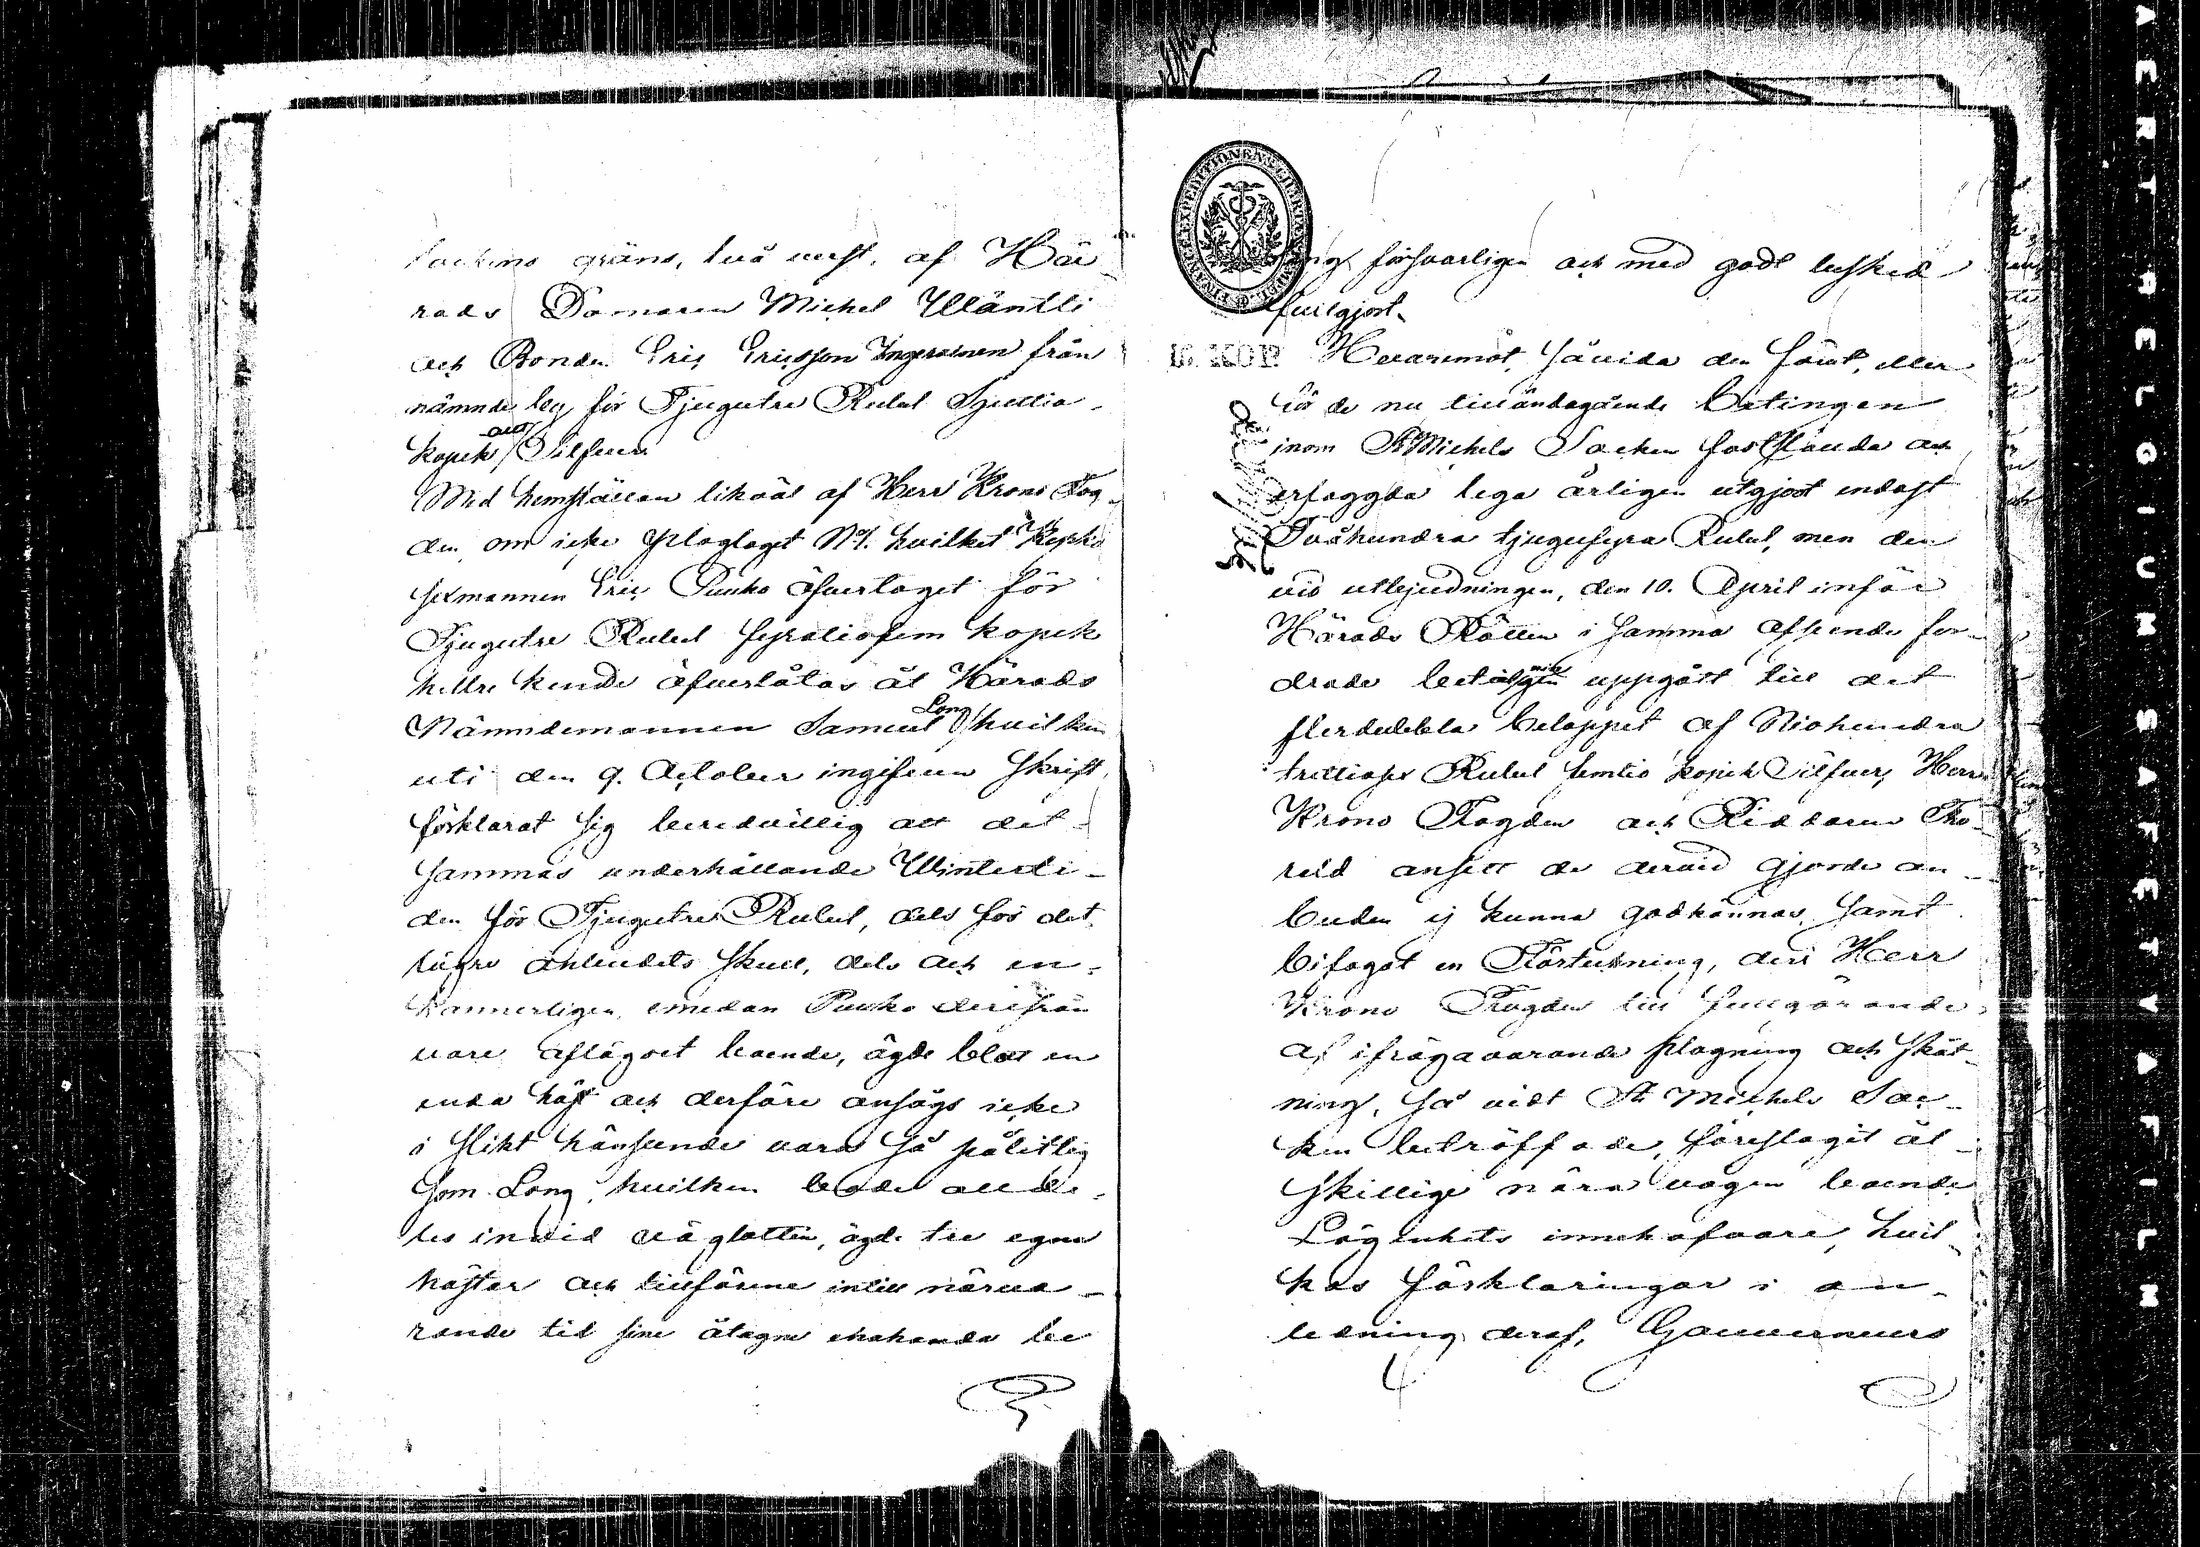 Sockens gräns, två verst, af Hä-
rads Domaren Michel Wäntti
och Bonden Eric Ericsson Ingeroinen från
nämnde by för Tjugutre Rubel Sjuttio
kopek Silfver.
Med hemställan likväl af Herr Krono Fog-
den, om icke ploglaget N:o 1. hvilket
sexmannen Eric Puuko åfvertaget för
Tjugutre Rubel fyratiofem kopek
hellre kunde åfverlåtas åt Härads
Nämndemannen Samuel Long hvilken
uti den 9. October ingifven skrift
förklarat sig beredvillig att det-
sammas underhållande Winterti-
den för Tjugutre Rubel, dels för det
lägre anbudets skull, dels och en-
kannerligen, emedan Puuko derifrån
vore aflägset boende, ägde blott en
enda häst och derföre ansågs icke
i slikt hänseende vara så pålitlig
som Long, hvilken bodde allde-
les invid väglotten, ägde tre egna
hästar och tillförene intill närva-
rande tid sine åtagne ehahanda be
ting försvarligen och med godt besked
fullgjort.
16 KOP.
Hvaremot, såvida den förut, eller
för de nu tilländagående Betingen
inom St Michels Socken fastställda och
erlaggda lega årligen utgjort endast
Tvåhundra tjugufyra Rubel, men den
vid utbjudningen, den 10. April inför
Härads Rätten i samma afseende for-
drade betalgen uppgått till det
flerdubbla beloppet af Niohundra
trettiosex Rubel femtio kopek Silfver, Herr
Krono Fogden och Riddaren Tho-
reld ansett de dervid gjorde an-
buden ej kunna godkännas, samt
bifogat en Förteckning, deri Herr
Krono Fogden till fullgörande
af ifrågavarande plogning och skåt-
ning, så vidt St Michels Soc-
ken beträffade, föreslagit åt-
skillige nära vägen boende
Lägenhets innehafvare, hvil-
kas förklaringar i an-
ledning deraf, Gouverneurs
4
AERT RELOICUM SAFETY AFILM